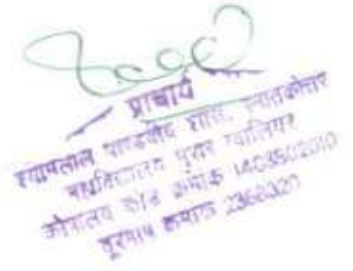 प्राचार्य
श्यामलाल पाण्डवीय शास. स्नातकोत्तर
महाविद्यालय मुरार ग्वालियर
कोषालय कोड क्रमांक 1403502010
दूरभाष क्रमांक 2368320